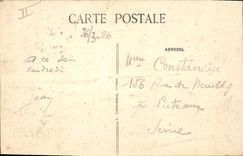 II
CARTE POSTALE
26/3-26
ADRESSE
A ce soir
Vendredi
Jean
Mme Constancin
156 Rue de Neuilly
à Puteaux
Seine